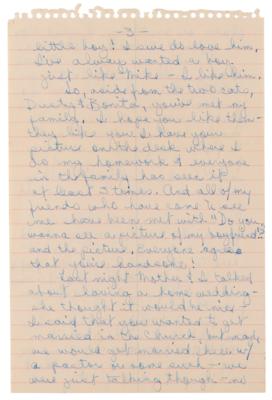 -3-
little boy! I sure do love him.
I've always wanted a boy
just like Mike - I like him.
So, aside from the two cats,
Dusty & Bonita, you've met my
family. I hope you like them -
they like you. I have your
picture on the desk where I
do my homework & everyone
in the family has seen it
at least 3 times. And all of my
friends who have come to see
me have been met with "Do you
wanna see a picture of my boyfriend?"
and the picture. Everyone agrees
that you're handsome!
Last night Mother & I talked
about having a home wedding -
she thought it would be nice -
I said that you wanted to get
married in the Church, but maybe
we would get married here w/
a pastor or some such - we
were just talking though - no